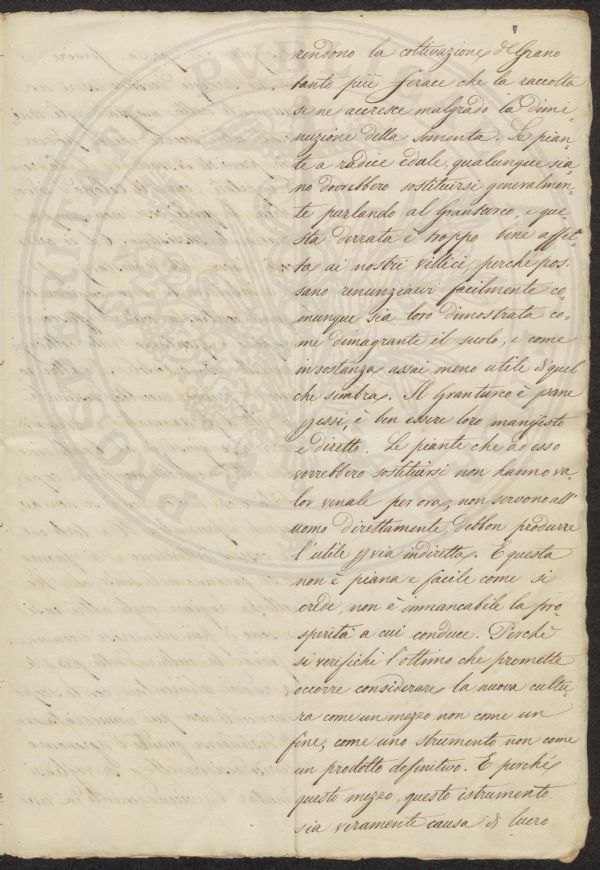 rendono la coltivazione del Grano
tanto più ferace che la raccolta
si ne accresce malgrado la dimi-
nuzione della sementa. Le pian-
te a radice edule, qualunque sia-
no dovrebbero sostituirsi generalmen-
te parlando al Granturco, e que-
sta derrata è troppo bene affet-
ta ai nostri villici, perchè pos-
sano renunziarvi facilmente co-
munque sia loro dimostrata co-
me dimagrante il suolo, e come
in sostanza assai meno utile di quel
che sembra. Il Granturco è pane
p essi, è ben essere loro manifesto
e diretto. Le piante che ad esso
vorrebbero sostituirsi non hanno va-
lor venale per ora, non servono all'
uomo direttamente, debbon produrre
l'utile p via indiretta. E questa
non è piana e facile come si
crede, non è immancabile la pro-
sperità a cui conduce. Perchè
si verifichi l'ottimo che promette
occorre considerare la nuova cultu-
ra come un mezzo non come un
fine, come uno strumento non come
un prodotto definitivo. E perchè
questo mezzo, questo istrumento
sia veramente causa di lucro
PROSPERI
PVB